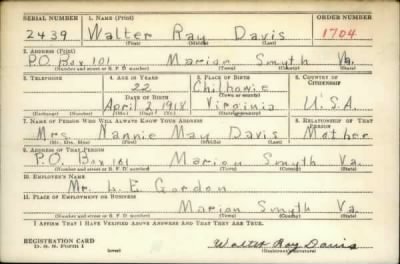 SERIAL NUMBER 1. NAME (Print) ORDER NUMBER
2439 Walter Ray Davis 1704
(First) (Middle) (Last)
2. ADDRESS (Print)
P.O. Box 101 Marion Smyth Va.
(Number and street or R. F. D. number) (Town) (County) (State)
3. TELEPHONE 4. AGE IN YEARS 5. PLACE OF BIRTH 6. COUNTRY OF CITIZENSHIP
22 Chilhowie
DATE OF BIRTH (Town or county)
April 2, 1918 Virginia U.S.A.
(Exchange) (Number) (Mo.) (Day) (Yr.) (State or country)
7. NAME OF PERSON WHO WILL ALWAYS KNOW YOUR ADDRESS 8. RELATIONSHIP OF THAT PERSON
Mrs. Nannie May Davis Mother
(Mr., Mrs., Miss) (First) (Middle) (Last)
9. ADDRESS OF THAT PERSON
P.O. Box 101 Marion Smyth Va.
(Number and street or R. F. D. number) (Town) (County) (State)
10. EMPLOYER'S NAME
Mr. L. E. Gordon
11. PLACE OF EMPLOYMENT OR BUSINESS
Marion Smyth Va.
(Number and street or R. F. D. number) (Town) (County) (State)
I AFFIRM THAT I HAVE VERIFIED ABOVE ANSWERS AND THAT THEY ARE TRUE.
REGISTRATION CARD
D. S. S. Form 1 (over) Walter Ray Davis
(Registrant's signature)